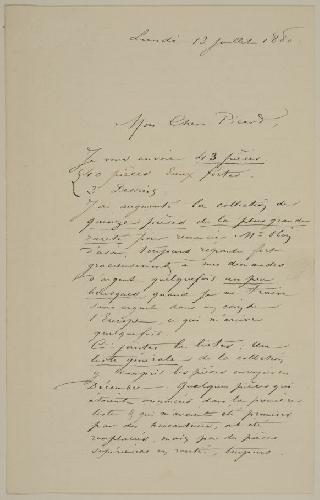 Lundi 12 juillet 1880
Mon Cher Picard,
Je vous envoie 43 pièces
40 pièces eaux fortes.
3 Dessins.
J'ai augmenté la collection de
quinze pièces de la plus grande
rareté pour remercier Mr
d'avoir toujours répondu fort
gracieusement à mes demandes
d'argent quelquefois un peu
brusques, quand je me trouve
sans argent dans un coin de
l'Europe, ce qui m'arrive
quelquefois.
Ci-joint les listes. Une
liste générale de la collection
y compris les pièces envoyées en
Décembre. Quelques pièces qui
étaient annoncées dans la première
liste & qui m'avaient été promises
par des amateurs, ont été
remplacées, mais par des pièces
supérieures en rareté, toujours.